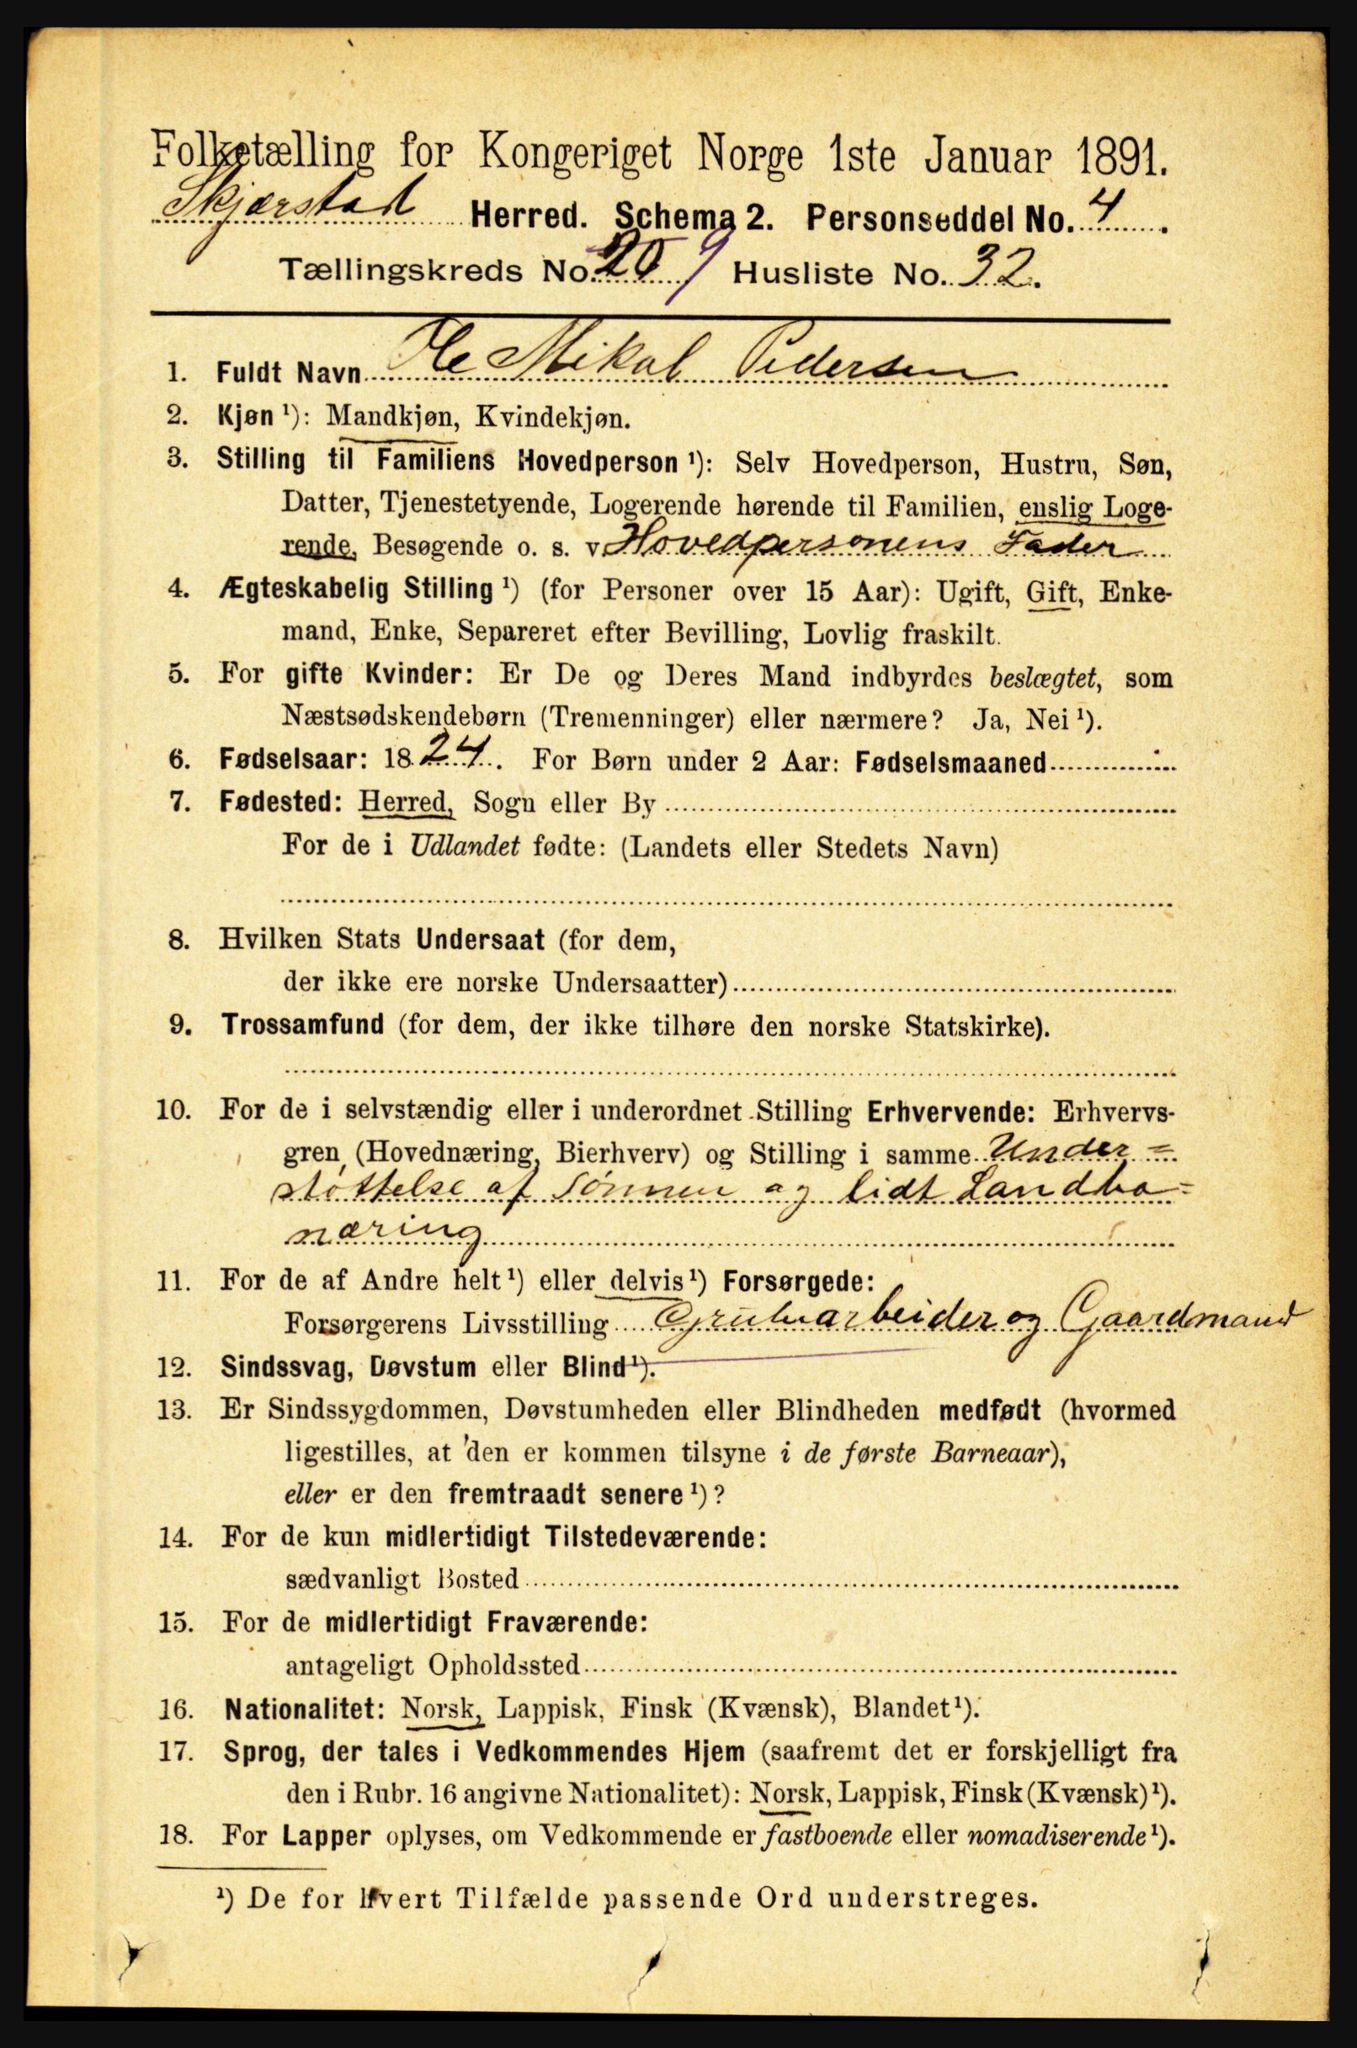 Folketælling for Kongeriget Norge 1ste Januar 1891.
Skjærstad Herred. Schema 2. Personseddel No. 4.
Tællingskreds No. 20 9 Husliste No. 32.
1. Fuldt Navn Ole Mikal Pedersen
2. Kjøn ¹): Mandkjøn, Kvindekjøn.
3. Stilling til Familiens Hovedperson ¹): Selv Hovedperson, Hustru, Søn,
Datter, Tjenestetyende, Logerende hørende til Familien, enslig Loge-
rende, Besøgende o. s. v. Hovedpersonens Fader
4. Ægteskabelig Stilling ¹) (for Personer over 15 Aar): Ugift, Gift, Enke-
mand, Enke, Separeret efter Bevilling, Lovlig fraskilt.
5. For gifte Kvinder: Er De og Deres Mand indbyrdes beslægtet, som
Næstsødskendebørn (Tremenninger) eller nærmere? Ja, Nei ¹).
6. Fødselsaar: 1824. For Børn under 2 Aar: Fødselsmaaned
7. Fødested: Herred, Sogn eller By
For de i Udlandet fødte: (Landets eller Stedets Navn)
8. Hvilken Stats Undersaat (for dem,
der ikke ere norske Undersaatter)
9. Trossamfund (for dem, der ikke tilhøre den norske Statskirke).
10. For de i selvstændig eller i underordnet Stilling Erhvervende: Erhvervs-
gren (Hovednæring, Bierhverv) og Stilling i samme Under=
støttelse af Sønnen og lidt Landbo=
næring
11. For de af Andre helt ¹) eller delvis ¹) Forsørgede:
Forsørgerens Livsstilling Grubearbeider og Gaardmand
12. Sindssvag, Døvstum eller Blind ¹).
13. Er Sindssygdommen, Døvstumheden eller Blindheden medfødt (hvormed
ligestilles, at den er kommen tilsyne i de første Barneaar),
eller er den fremtraadt senere ¹)?
14. For de kun midlertidigt Tilstedeværende:
sædvanligt Bosted
15. For de midlertidigt Fraværende:
antageligt Opholdssted
16. Nationalitet: Norsk, Lappisk, Finsk (Kvænsk), Blandet ¹).
17. Sprog, der tales i Vedkommendes Hjem (saafremt det er forskjelligt fra
den i Rubr. 16 angivne Nationalitet): Norsk, Lappisk, Finsk (Kvænsk) ¹).
18. For Lapper oplyses, om Vedkommende er fastboende eller nomadiserende ¹).
¹) De for hvert Tilfælde passende Ord understreges.